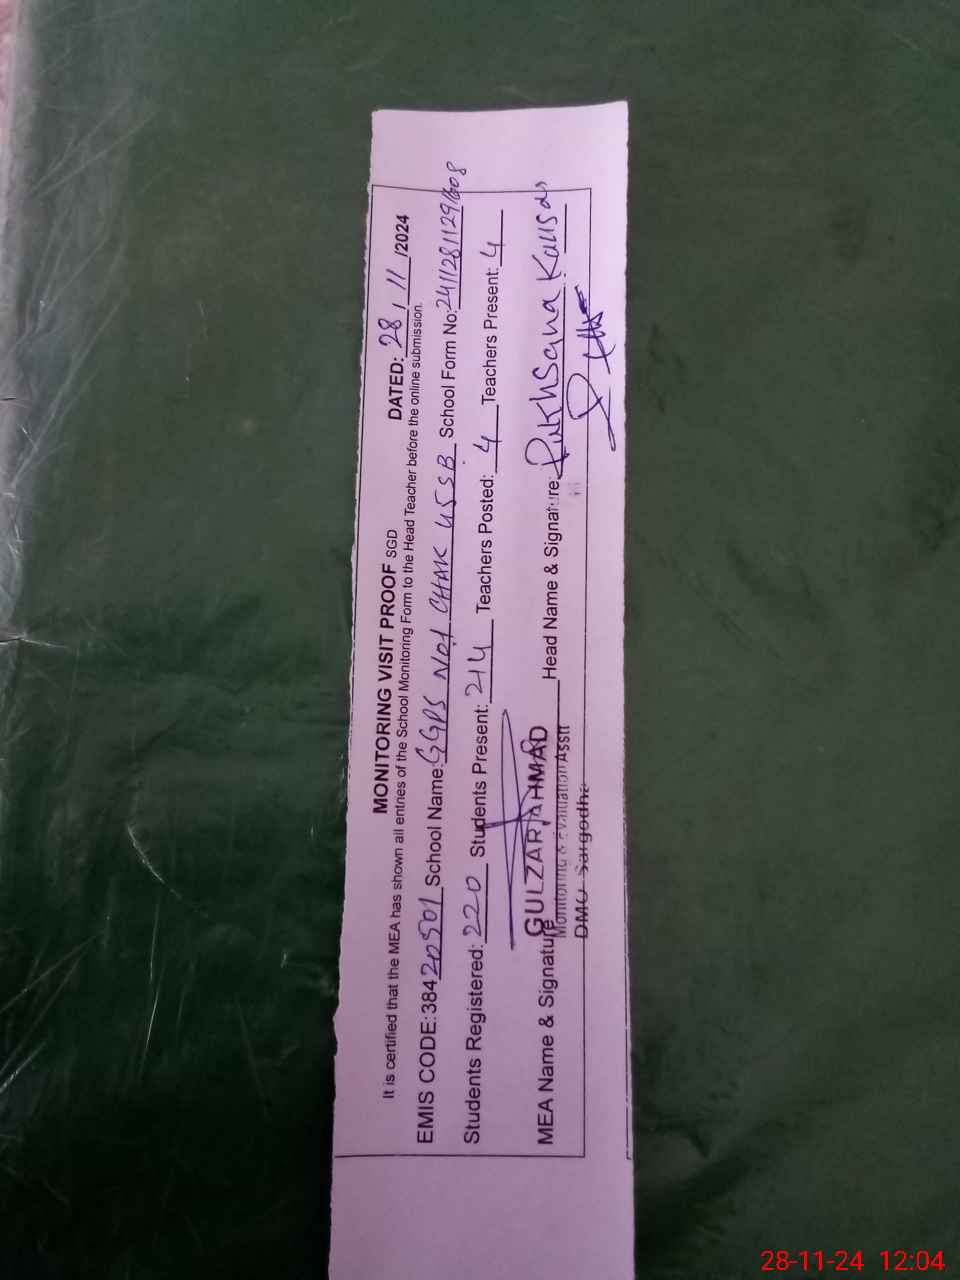 MONITORING VISIT PROOF SGD DATED: 28/11/2024
It is certified that the MEA has shown all entries of the School Monitoring Form to the Head Teacher before the online submission.
EMIS CODE: 38420501 School Name: GGPS No1 CHAK 45 SB School Form No:
Students Registered: 220 Students Present: 214 Teachers Posted: 4 Teachers Present: 4
GULZAR AHMAD
MEA Name & Signature Head Name & Signature:
Monitoring & Evaluation Asstt
DMO Sargodha
28-11-24 12:04